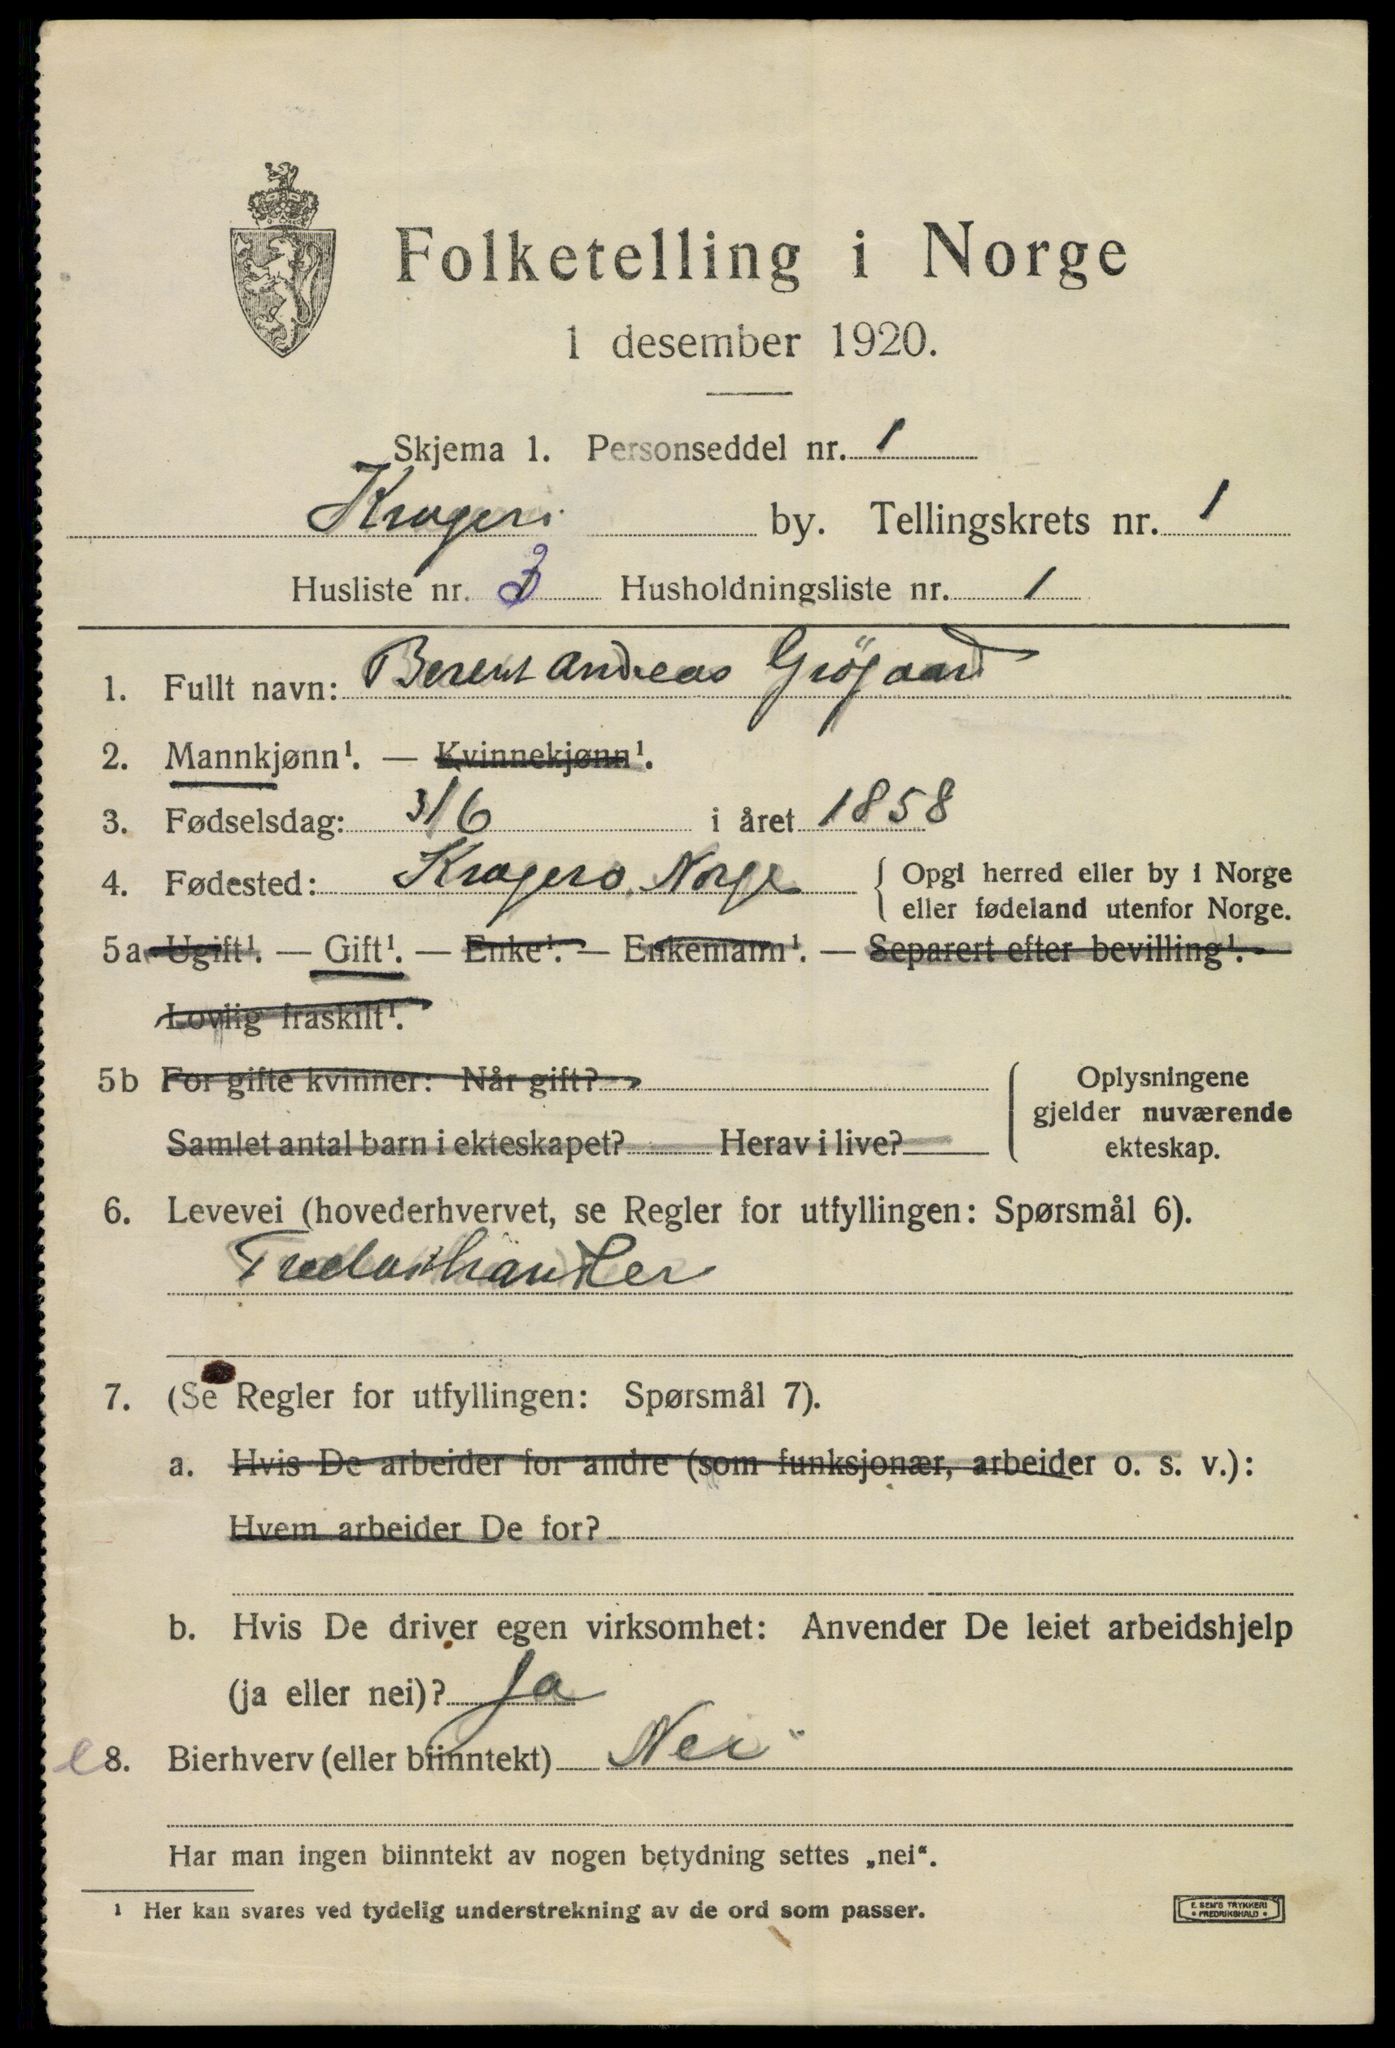 Folketelling i Norge
1 desember 1920.
Skjema 1. Personseddel nr. 1
Kragerø by. Tellingskrets nr. 1
Husliste nr. 3 Husholdningsliste nr. 1
1. Fullt navn: Berent Andreas Grøgaard
2. Mannkjønn¹. — Kvinnekjønn¹.
3. Fødselsdag: 3/6 i året 1858
4. Fødested: Kragerø, Norge { Opgi herred eller by i Norge
eller fødeland utenfor Norge.
5a Ugift¹. — Gift¹. — Enke¹. — Enkemann¹. — Separert efter bevilling¹. —
Lovlig fraskilt¹.
5b For gifte kvinner: Når gift? { Oplysningene
gjelder nuværende
Samlet antal barn i ekteskapet? Herav i live? ekteskap.
6. Levevei (hovederhvervet, se Regler for utfyllingen: Spørsmål 6).
Trelasthandler
7. (Se Regler for utfyllingen: Spørsmål 7).
a. Hvis De arbeider for andre (som funksjonær, arbeider o. s. v.):
Hvem arbeider De for?
b. Hvis De driver egen virksomhet: Anvender De leiet arbeidshjelp
(ja eller nei)? Ja
8. Bierhverv (eller biinntekt) Nei
Har man ingen biinntekt av nogen betydning settes „nei“.
¹ Her kan svares ved tydelig understrekning av de ord som passer.
E. SEM'S TRYKKERI
• FREDRIKSHALD •